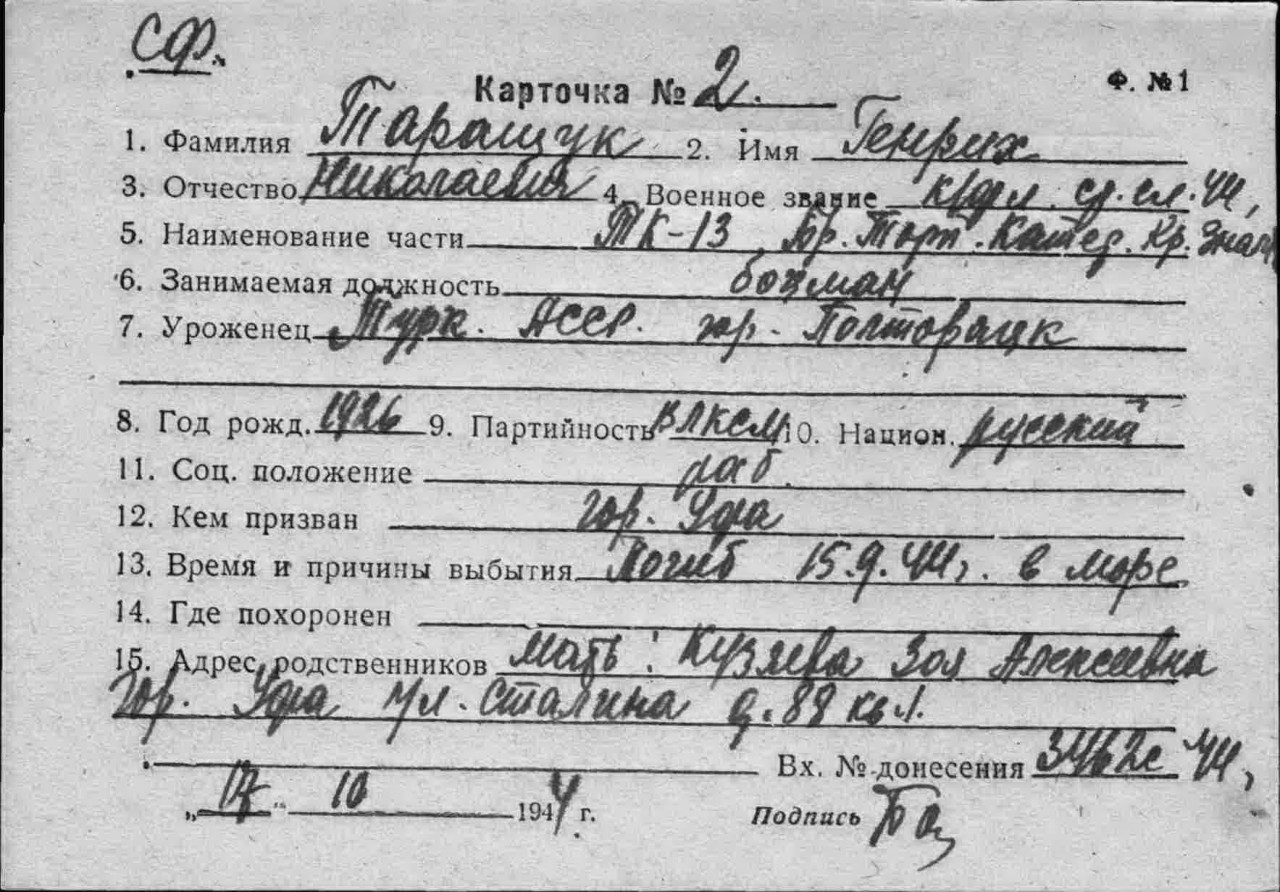 СФ.
Карточка № 2. Ф. №1
1. Фамилия Таращук 2. Имя Генрих
3. Отчество Николаевич 4. Военное звание к/фл. ср. сл. 44,
5. Наименование части ТК-13 Бр. Торп. Катер. Кр. Знам
6. Занимаемая должность боцман
7. Уроженец Турк. АССР. гор. Полторацк
8. Год рожд. 1926 9. Партийность ВЛКСМ 10. Национ. русский
11. Соц. положение раб.
12. Кем призван гор. Уфа
13. Время и причины выбытия Погиб 15.9.44г. в море
14. Где похоронен
15. Адрес родственников мать: Кузяева Зоя Алексеевна
гор. Уфа ул. Сталина д. 88 кв 1.
Вх. № донесения 3462с 44,
„17" 10 1944 г. Подпись